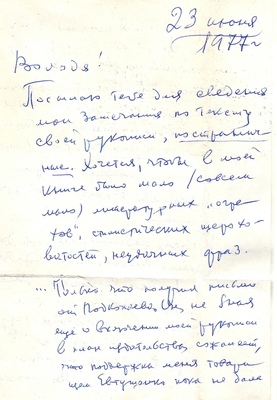 23 июня
1977 г
Володя!
Посылаю тебе для сведения
мои замечания по тексту
своей рукописи, постранич-
ные. Хочется, чтобы в моей
книге было мало (совсем
мало) литературных "огре-
хов", стилистических шерохо-
ватостей, неудачных фраз.
... Только что получил письмо
от Подкопаева. Он, не зная
ещё о включении моей рукописи
в план издательства, сожалеет,
что поддержка меня товари-
щем Евтушенко пока не дала